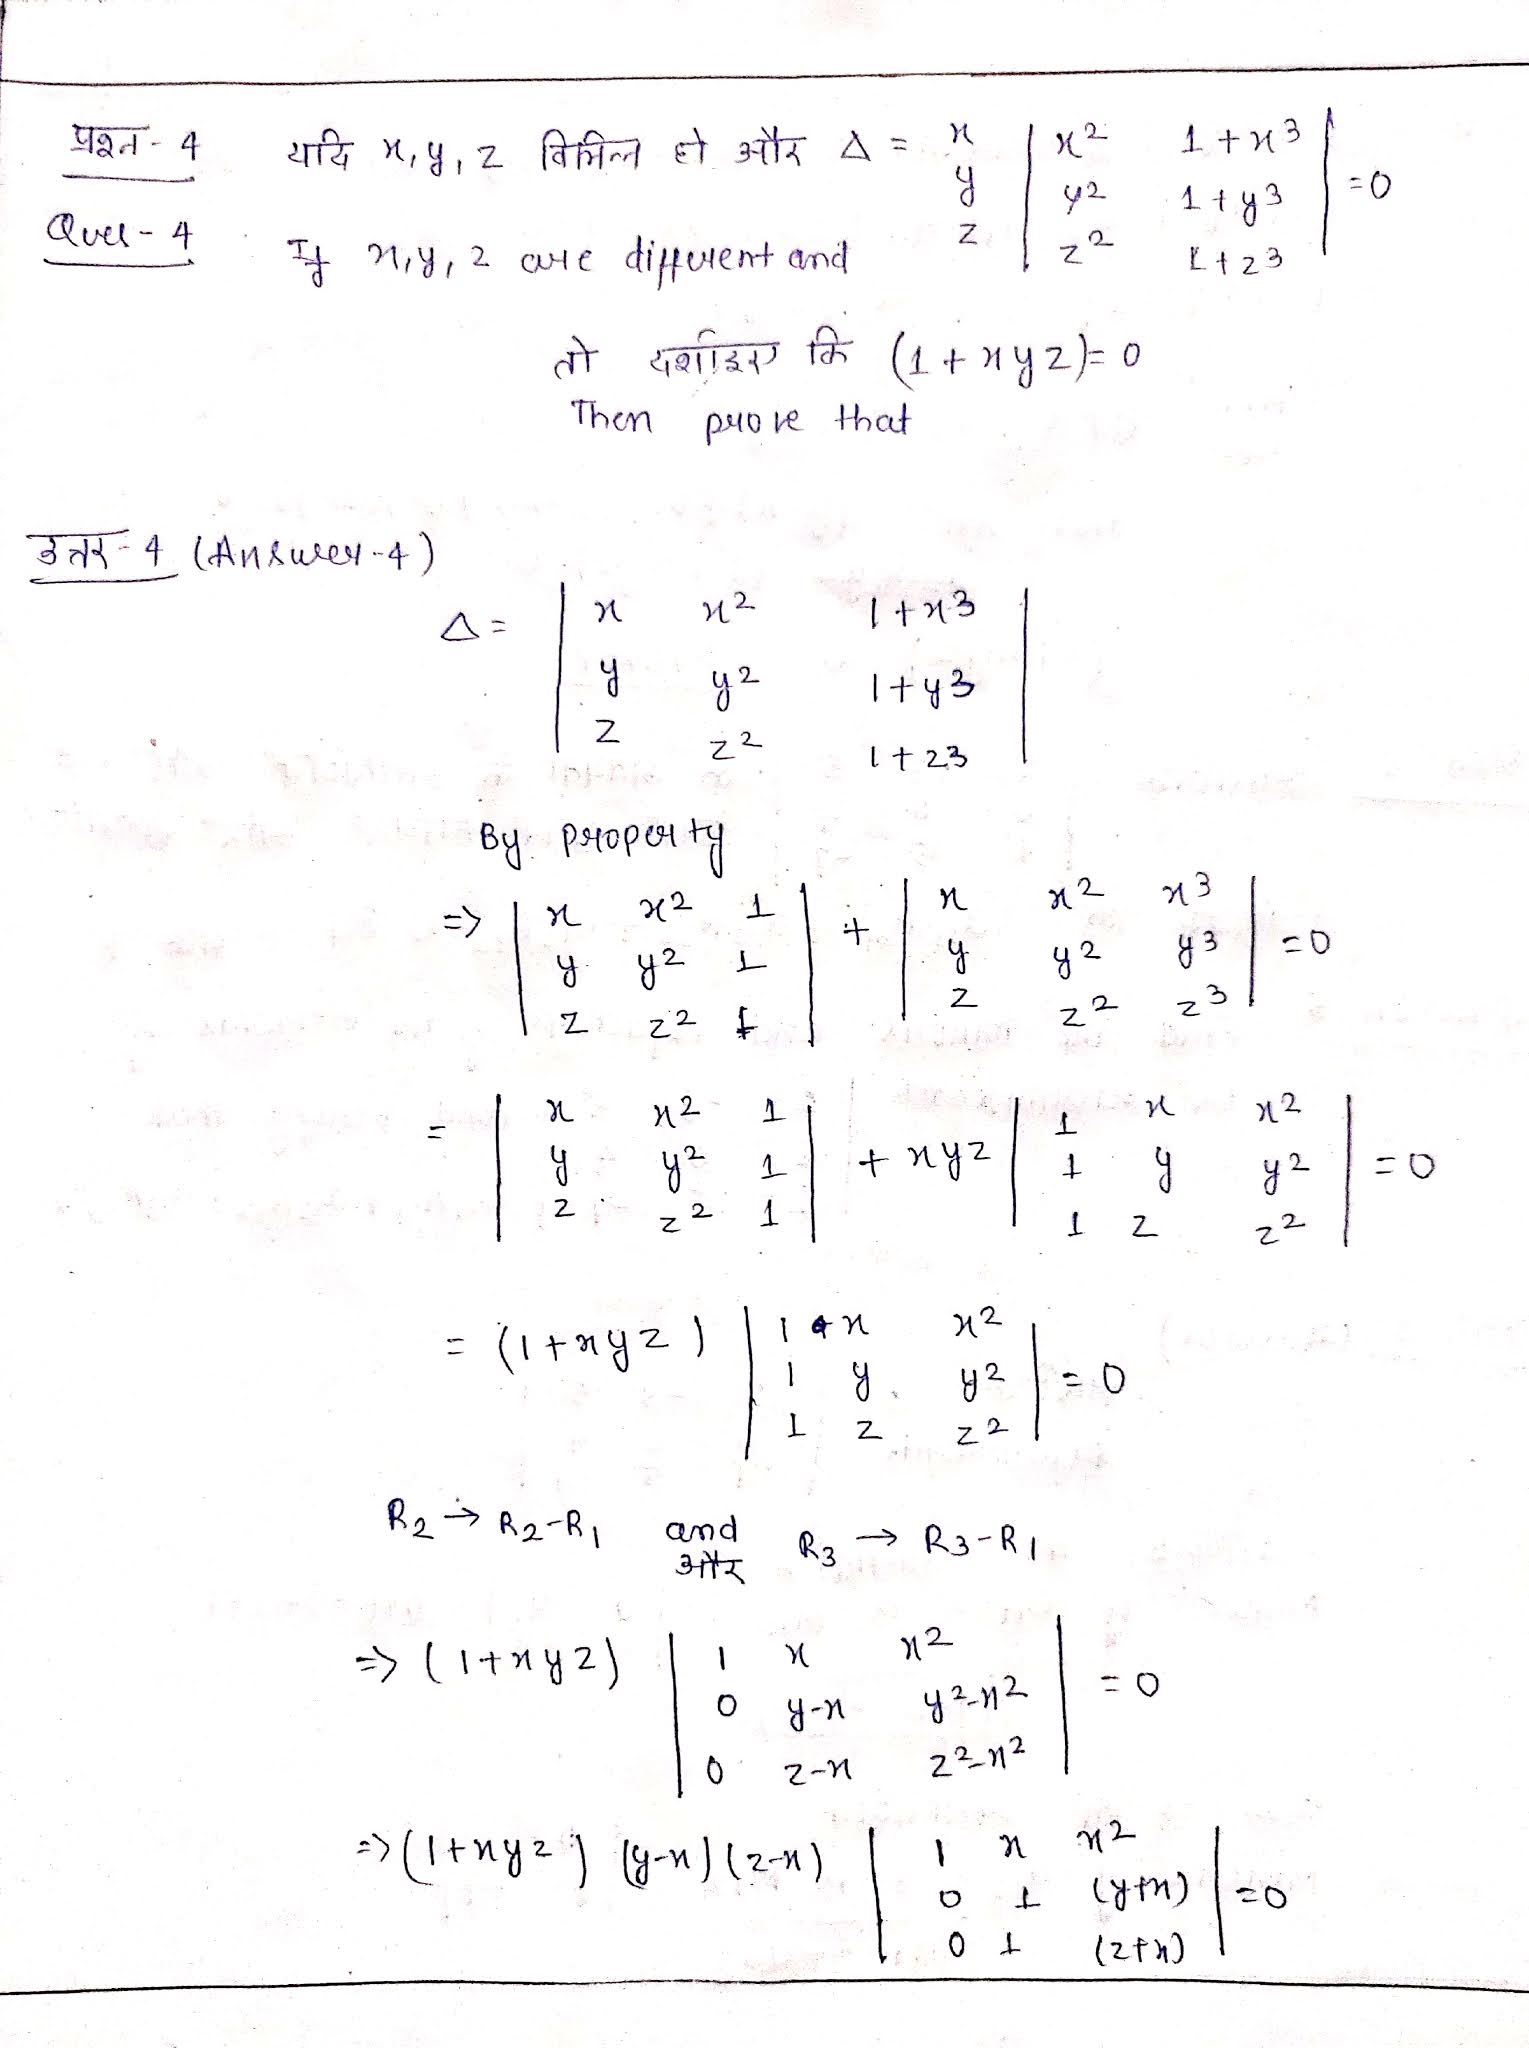 प्रश्न - 4 यदि x, y, z विभिन्न हो और Δ = x | x2 1 + x3 |
y | y2 1 + y3 | = 0
z | z2 1 + z3 |
Ques - 4 If x, y, z are different and
तो दर्शाइए कि (1 + xyz) = 0
Then prove that
उत्तर - 4 (Answer - 4)
Δ = | x x2 1 + x3 |
| y y2 1 + y3 |
| z z2 1 + z3 |
By property
=> | x x2 1 | + | x x2 x3 |
| y y2 1 | | y y2 y3 | = 0
| z z2 1 | | z z2 z3 |
= | x x2 1 | + xyz | 1 x x2 |
| y y2 1 | | 1 y y2 | = 0
| z z2 1 | | 1 z z2 |
= (1 + xyz) | 1 x x2 |
| 1 y y2 | = 0
| 1 z z2 |
R2 → R2 - R1 and R3 → R3 - R1
और
=> (1 + xyz) | 1 x x2 |
| 0 y-x y2-x2 | = 0
| 0 z-x z2-x2 |
=> (1 + xyz) (y-x) (z-x) | 1 x x2 |
| 0 1 (y+x) | = 0
| 0 1 (z+x) |